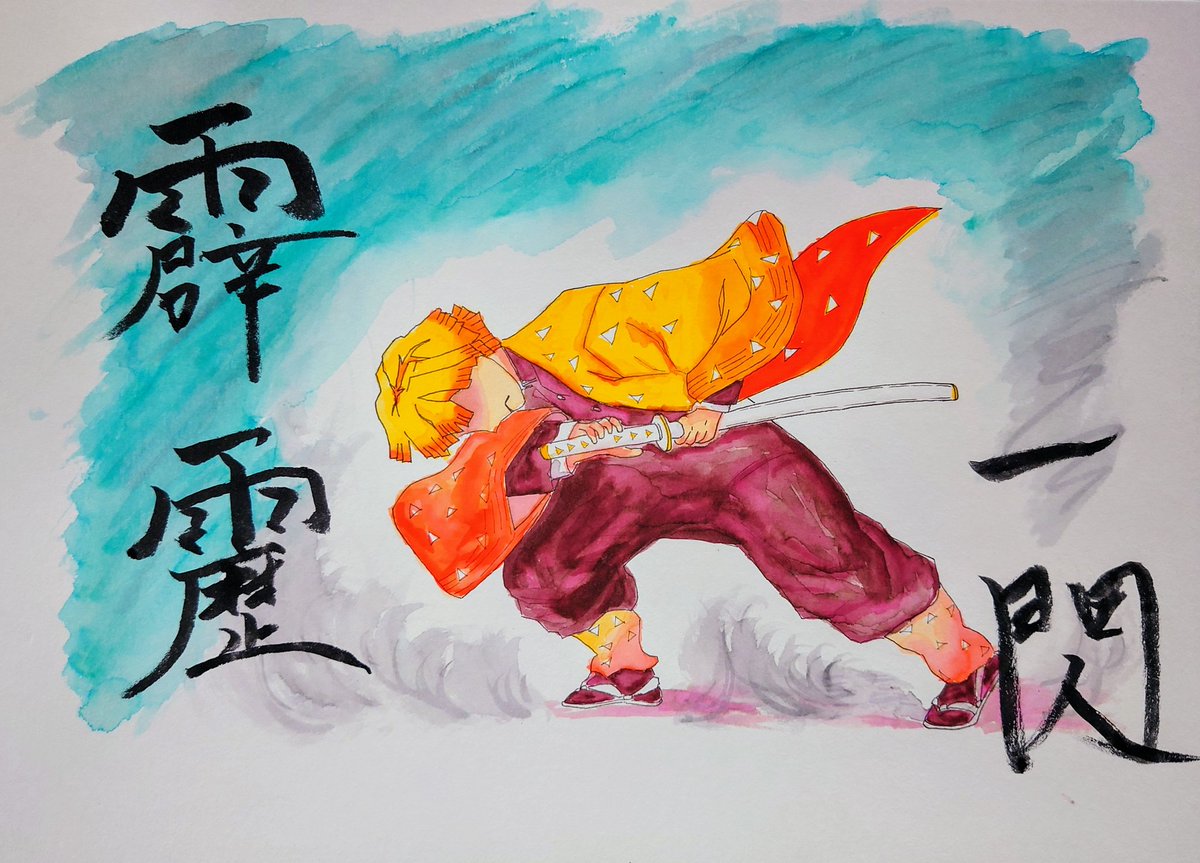 霹靂
一閃